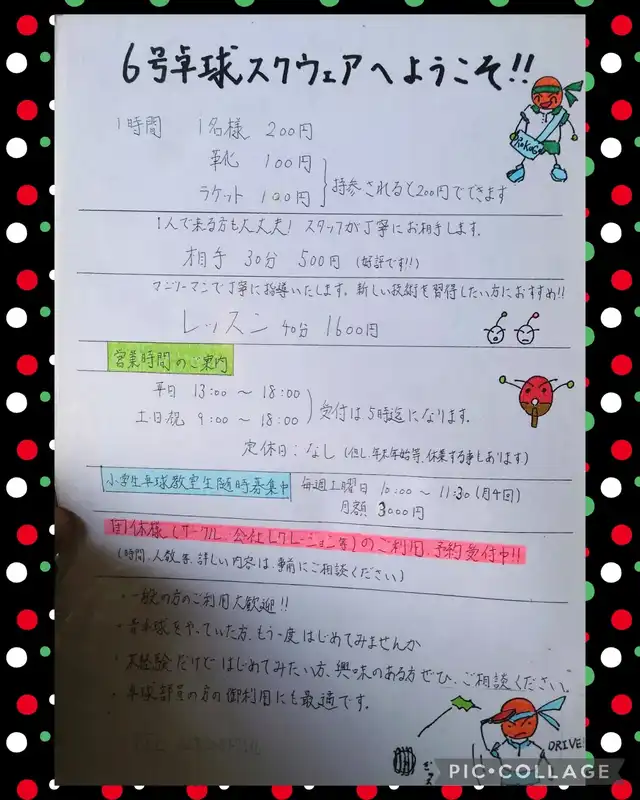 6号卓球スクウェアへようこそ!!
ROKUGO
1時間 1名様 200円
靴 100円
ラケット 100円
持参されると200円でできます
1人で来る方も大丈夫! スタッフが丁寧にお相手します。
相手 30分 500円 (好評です!!)
マンツーマンで丁寧に指導いたします。新しい技術を習得したい方におすすめ!!
レッスン 40分 1600円
営業時間のご案内
平日 13:00 ~ 18:00
土日祝 9:00 ~ 18:00
受付は5時迄になります。
定休日:なし (但し、年末年始等、休業する事もあります)
小学生卓球教室生随時募集中
毎週土曜日 10:00 ~ 11:30 (月4回)
月額 3000円
団体様 (サークル、会社レクレーション等) のご利用、予約受付中!!
(時間、人数等、詳しい内容は、事前にご相談ください)
・一般の方のご利用大歓迎!!
・昔卓球をやっていた方、もう一度はじめてみませんか
・未経験だけどはじめてみたい方、興味のある方ぜひ、ご相談ください。
・卓球部員の方の御利用にも最適です。
DRIVE!
PIC•COLLAGE